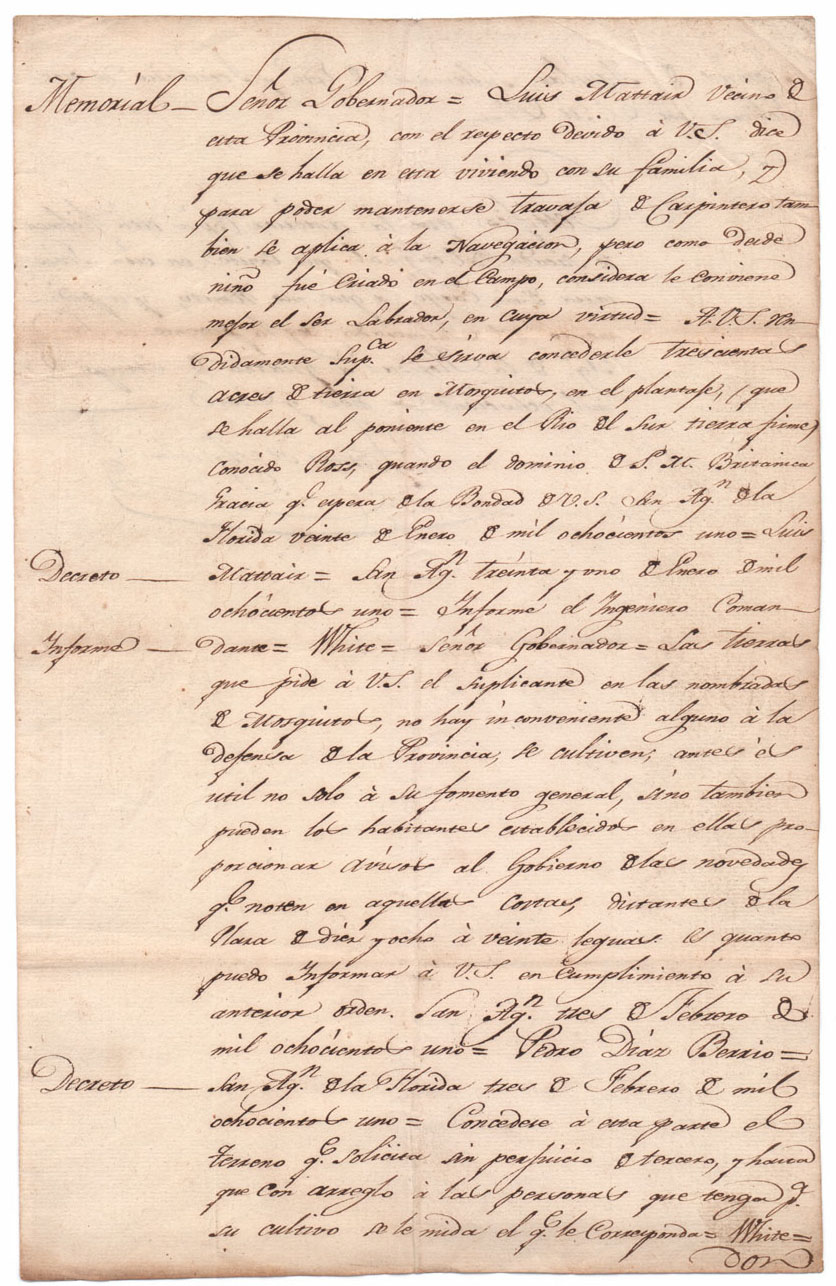 Memorial — Señor Gobernador = Luis Mattair Vecino de
esta Provincia, con el respecto devido à V.S. dice
que se halla en esta viviendo con su familia, y
para poder mantenerse travaja de Carpintero tam-
bien se aplica à la Navegacion, pero como desde
niño fué Criado en el Campo, considera le conviene
mejor el ser Labrador, en cuya virtud = A.V.S. ren-
didamente Sup.ca se sirva concederle trescientas
acres de tierra en Mosquitos, en el plantaje, (que
se halla al poniente en el Rio del Sur tierra firme)
conocido Ross, quando el dominio de S.M. Britanica
Gracia q.e espera de la Bondad de V.S. San Ag.n de la
Florida veinte de Enero de mil ochocientos uno = Luis
Decreto — Mattair = San Ag.n treinta y uno de Enero de mil
ochocientos uno = Informe el Ingeniero Coman-
Informe — dante = White = Señor Gobernador = Las tierras
que pide à V.S. el suplicante en las nombradas
de Mosquitos, no hay inconveniente alguno à la
defensa de la Provincia, se cultiven; antes és
util no solo à su fomento general, sino tambien
pueden los habitantes establecidos en ellas pro-
porcionar avisos al Gobierno de las novedades
q.e noten en aquellas costas, distantes de la
Plaza de diez y ocho à veinte leguas. Es quanto
puedo Informar à V.S. en Cumplimiento à su
anterior orden. San Ag.n tres de Febrero de
mil ochocientos uno = Pedro Diaz Berrio =
Decreto — San Ag.n de la Florida tres de Febrero de mil
ochocientos uno = Concedese à esta parte el
terreno q.e solicita sin perjuicio de tercero, y hasta
que con arreglo à las personas que tenga p.a
su cultivo se le mida el q.e le Corresponda = White =
Don